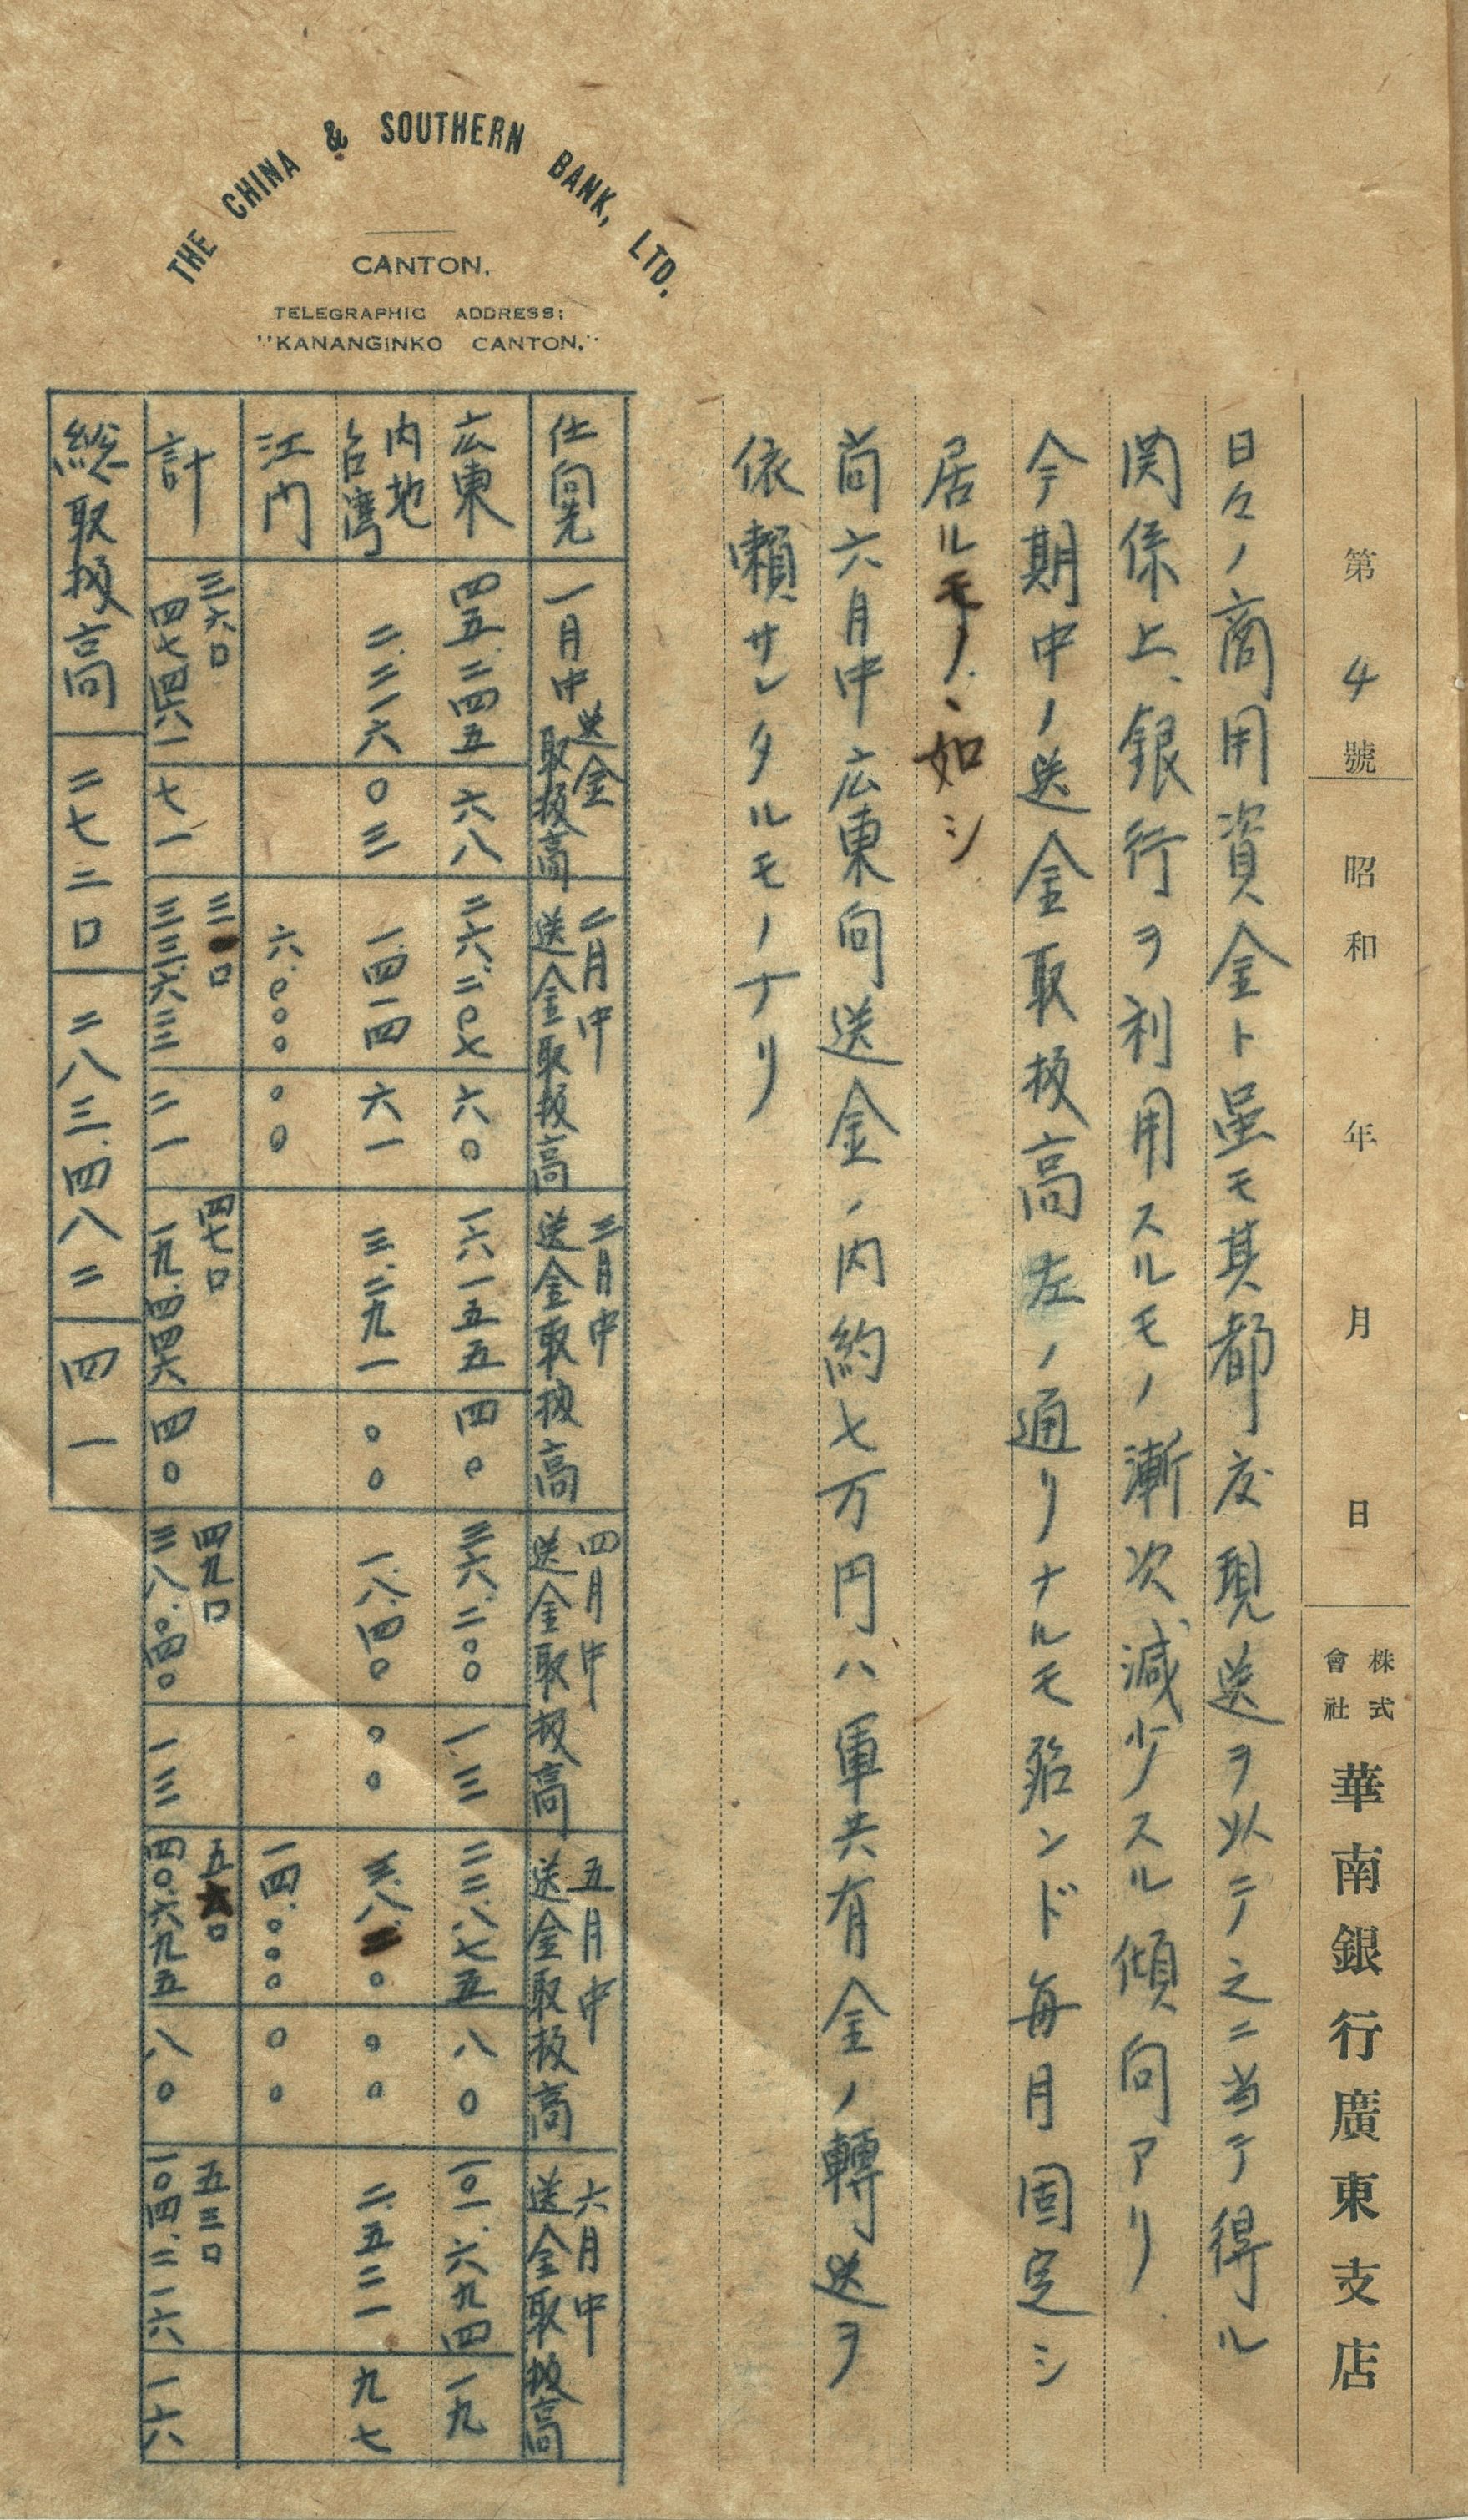 THE CHINA & SOUTHERN BANK, LTD.
CANTON.
TELEGRAPHIC ADDRESS:
"KANANGINKO CANTON."
第4號 昭和 年 月 日 株式會社 華南銀行廣東支店
日々ノ商用資金ト虽モ其都度現送ヲ以テ之ニ当テ得ル
関係上、銀行ヲ利用スルモノ漸次減少スル傾向アリ
今期中ノ送金取扱高左ノ通リナルモ殆ンド毎月固定シ
居ルモノヽ如シ
尚六月中広東向送金ノ内約七万円ハ軍共有金ノ轉送ヲ
依頼サレタルモノナリ
仕向先 一月中送金取扱高 二月中送金取扱高 三月中送金取扱高 四月中送金取扱高 五月中送金取扱高 六月中送金取扱高
広東 四五.二四五 六八 二六.二〇七 六〇 一六一五五 四〇 三六.二〇〇 一三 二二.八七五 八〇 一〇一.六九四 一九
内地台湾 二.二一六 〇三 一.四一四 六一 三.二九一 〇〇 一.八四〇 〇〇 三.八二〇 〇〇 二.五二一 九七
江门 六.〇〇〇 〇〇 一四.〇〇〇 〇〇
計 三六口 四七四六一 七一 三口 三三.六二二 二一 四七口 一九.四四六 四〇 四九口 三八.〇四〇 一三 五六口 四〇.六九五 八〇 五三口 一〇四.二一六 一六
総取扱高 二七二口 二八三.四八二 四一